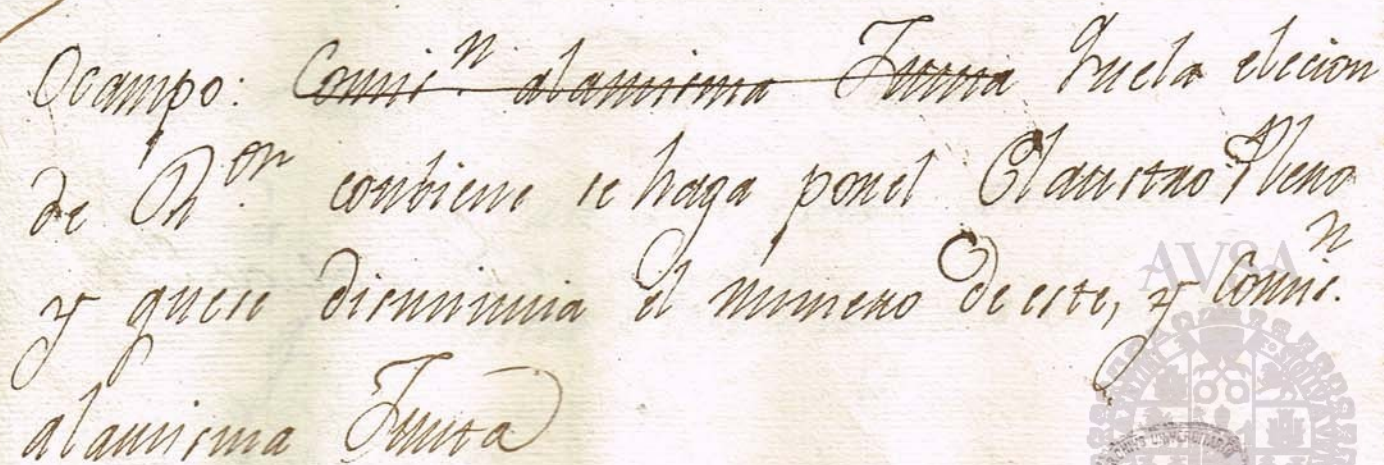 Ocampo: Comis.n alamisma Junta Quela elecion
de R.or conbiene se haga por el Claustro Pleno
y quese disminuia el numero de este, y Comis.n
alamisma Junta
AVSA